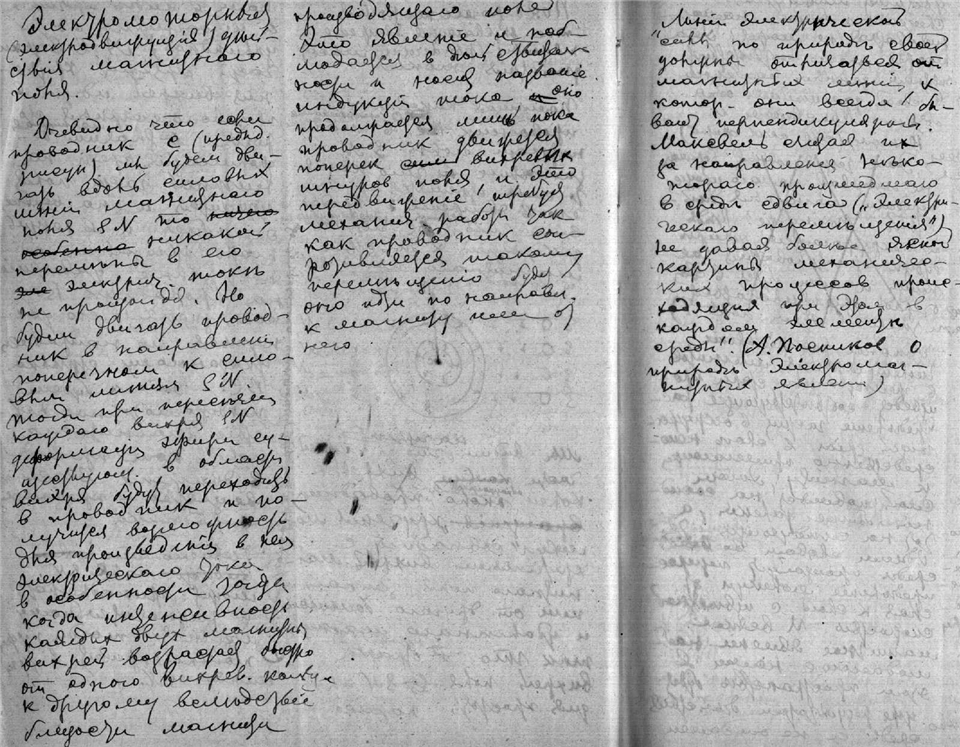 Электромоторныя
(электродвижущія) дѣй-
ствія магнитнаго
поля.
Очевидно что если
проводник с (предыд.
рисун) мы будем дви-
гать вдоль силовых
линій магнитнаго
поля SN то ничего
особенно никакой
перемѣны в его
электрич. токѣ
не произойдет. Но
будем двигать провод-
ник в направленіи
поперечном к сило-
вым линіям SN.
Тогда при пересѣченіи
каждаго вихря SN
деформація эфира су-
ществующ. в области
вихря будут переходить
в проводник и по-
лучится возможность
для произведенія в нем
электрическаго тока
в особенности тогда
когда интенсивность
каждых двух магнитн.
вихрей возрастает быстро
от одного вихрев. кольца
к другому вслѣдствіе
близости магнита
производящаго поле
Это явленіе и наб-
людается в дѣйствитель-
ности и носит названіе
индукціи тока и оно
продолжается лишь пока
проводник движется
поперек сил вихревых
шнуров поля и это
передвиженіе требует
механич. работы так
как проводник соп-
ротивляется такому
перемѣщенію будет
оно идти по направл.
к магниту или от
него.
Линіи электрической
"силы по природѣ своей
должны отличаться от
магнитных линій к
котор. они всегда бы-
вают перпендикулярны.
Максвелль считал их
за направленія нѣко-
тораго происшедшаго
в средѣ сдвига ("электри-
ческаго перемѣщенія")
не давая болѣе ясной
картины механичес-
ких процессов проис-
ходящих при этом в
каждом элементѣ
среды". (А. Постников О
природѣ электромаг-
нитных явленій)